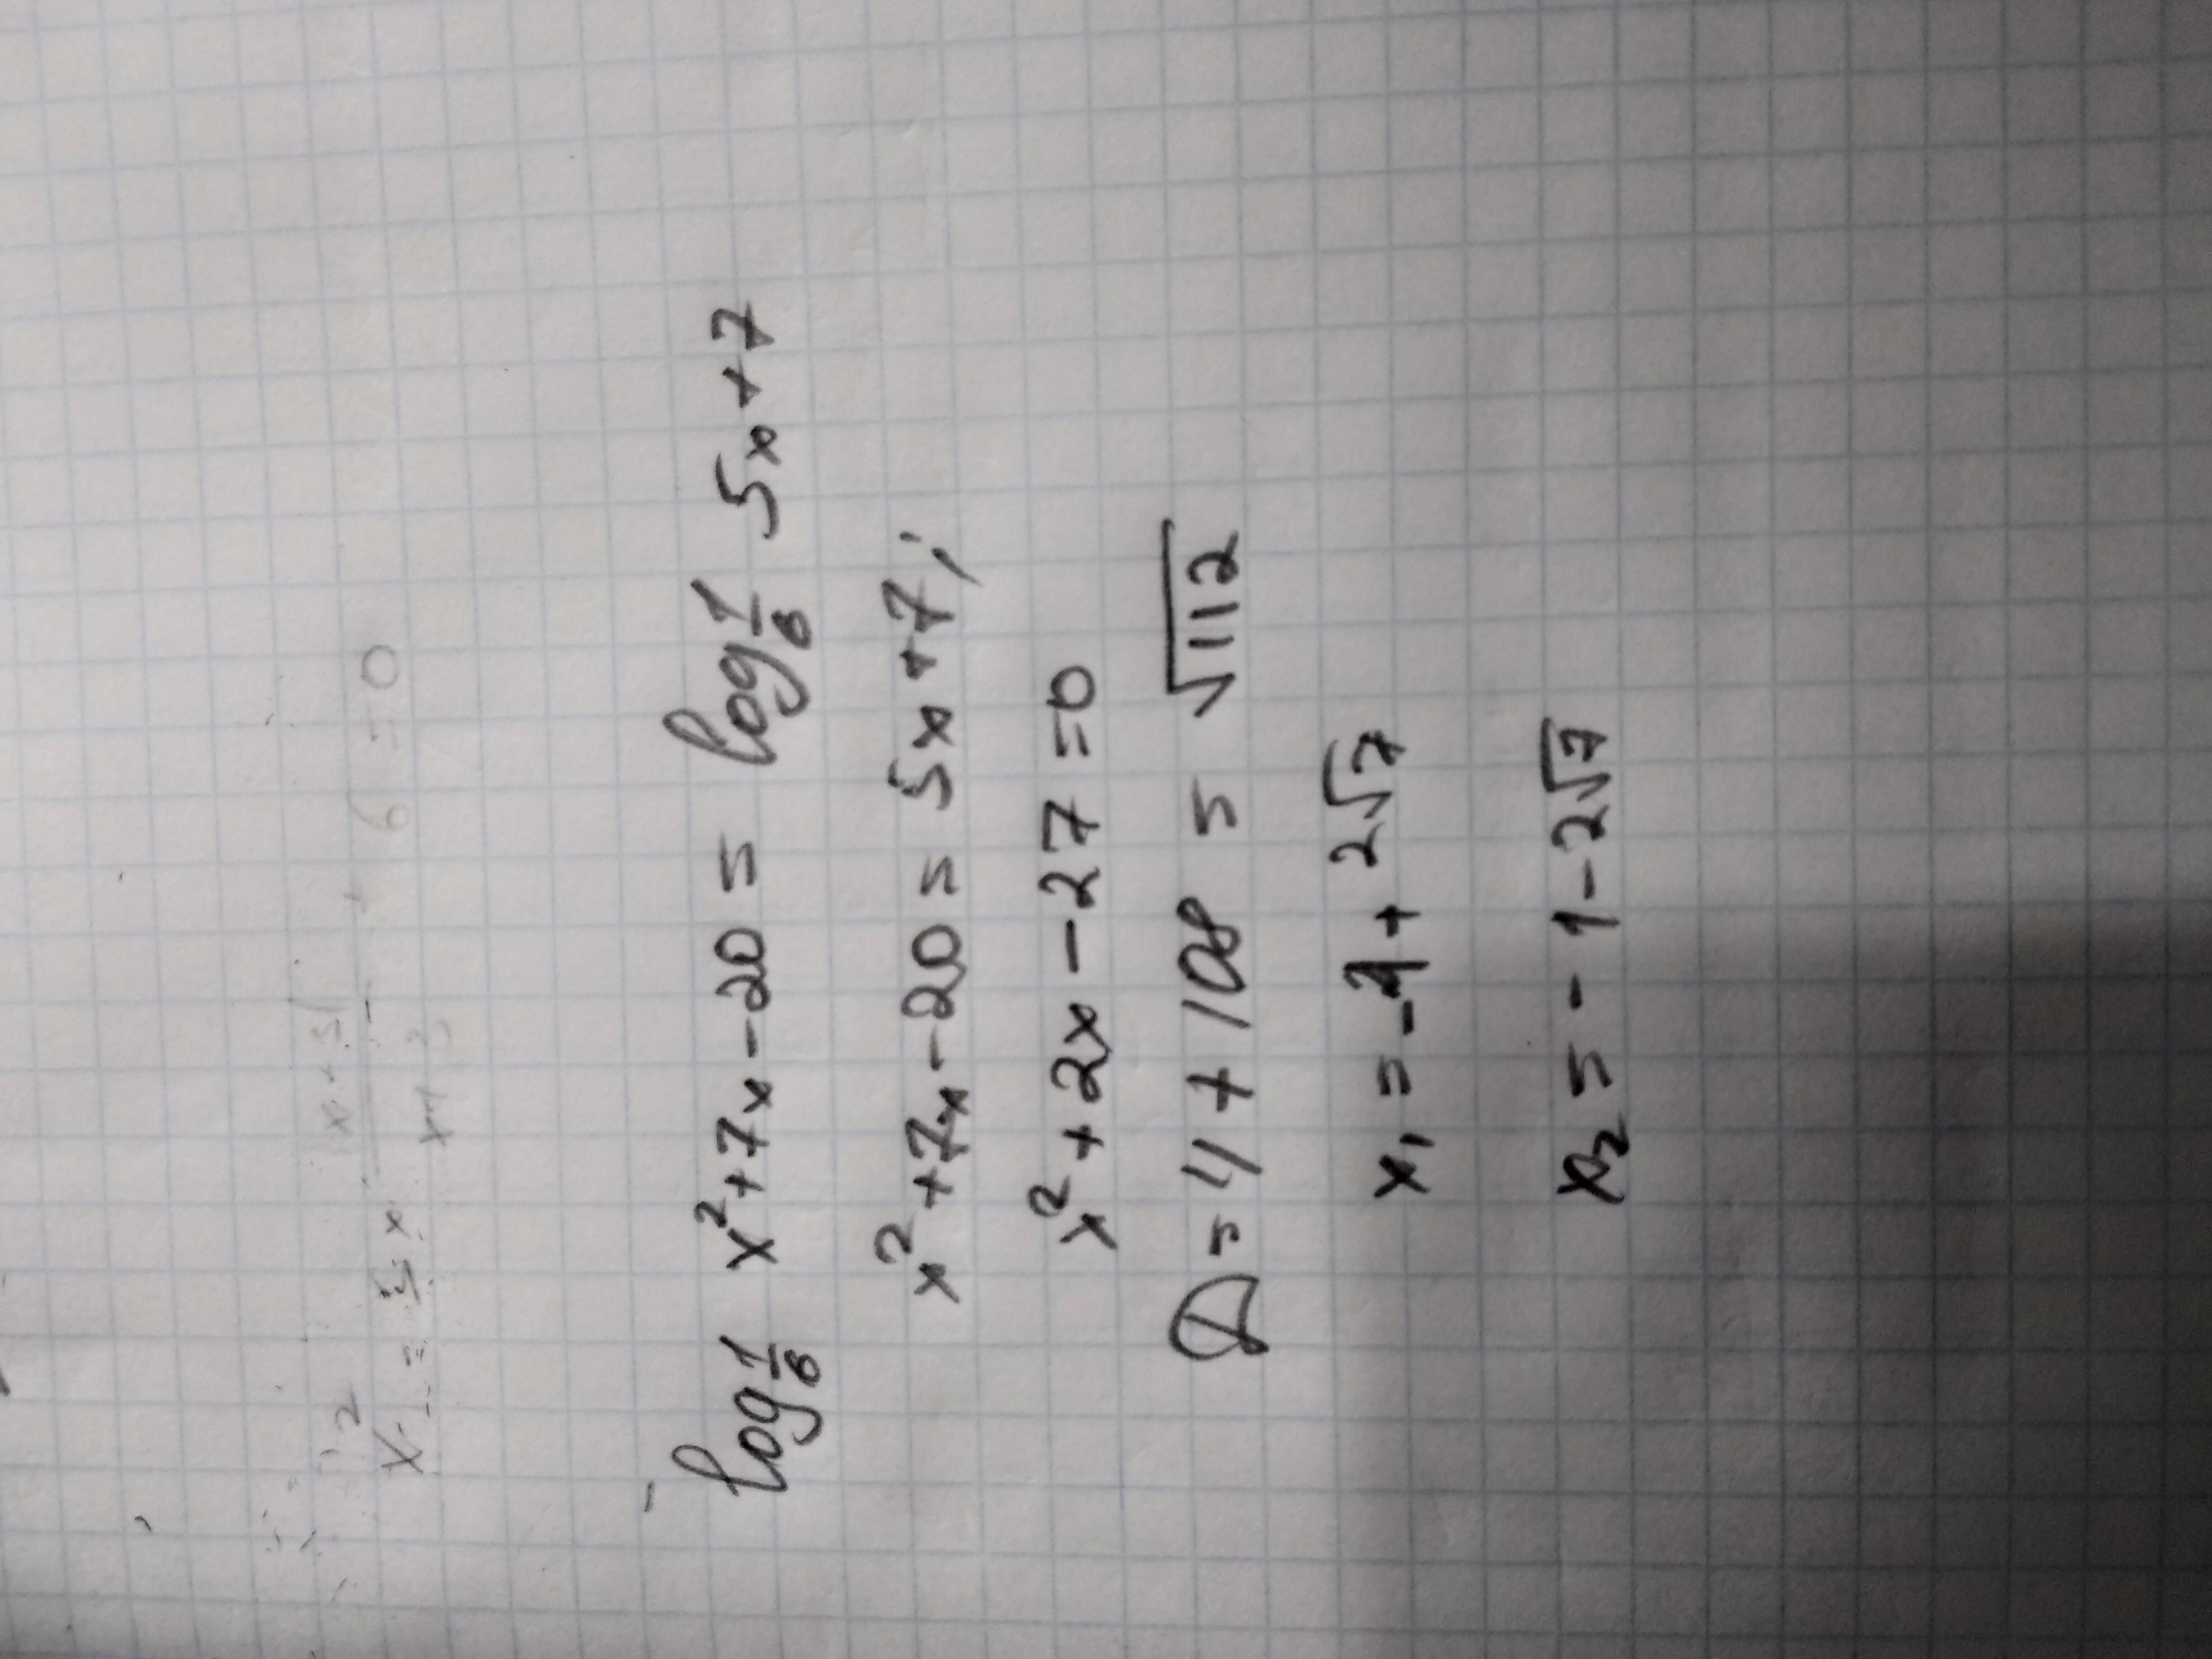 log 1/6 x²+7x-20 = log 1/6 5x+7
x²+7x-20 = 5x+7;
x²+2x-27=0
D=4+108 = √112
x₁=-1+2√7
x₂=-1-2√7